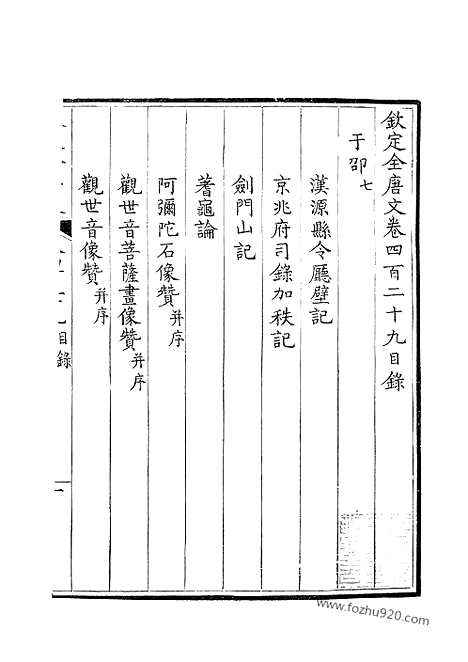 欽定全唐文卷四百二十九目錄
于邵七
漢源縣令廳壁記
京兆府司錄加秩記
劍門山記
蓍龜論
阿彌陀石像贊并序
觀世音菩薩畫像贊并序
觀世音像贊并序
目錄
一
www.fozhu920.com